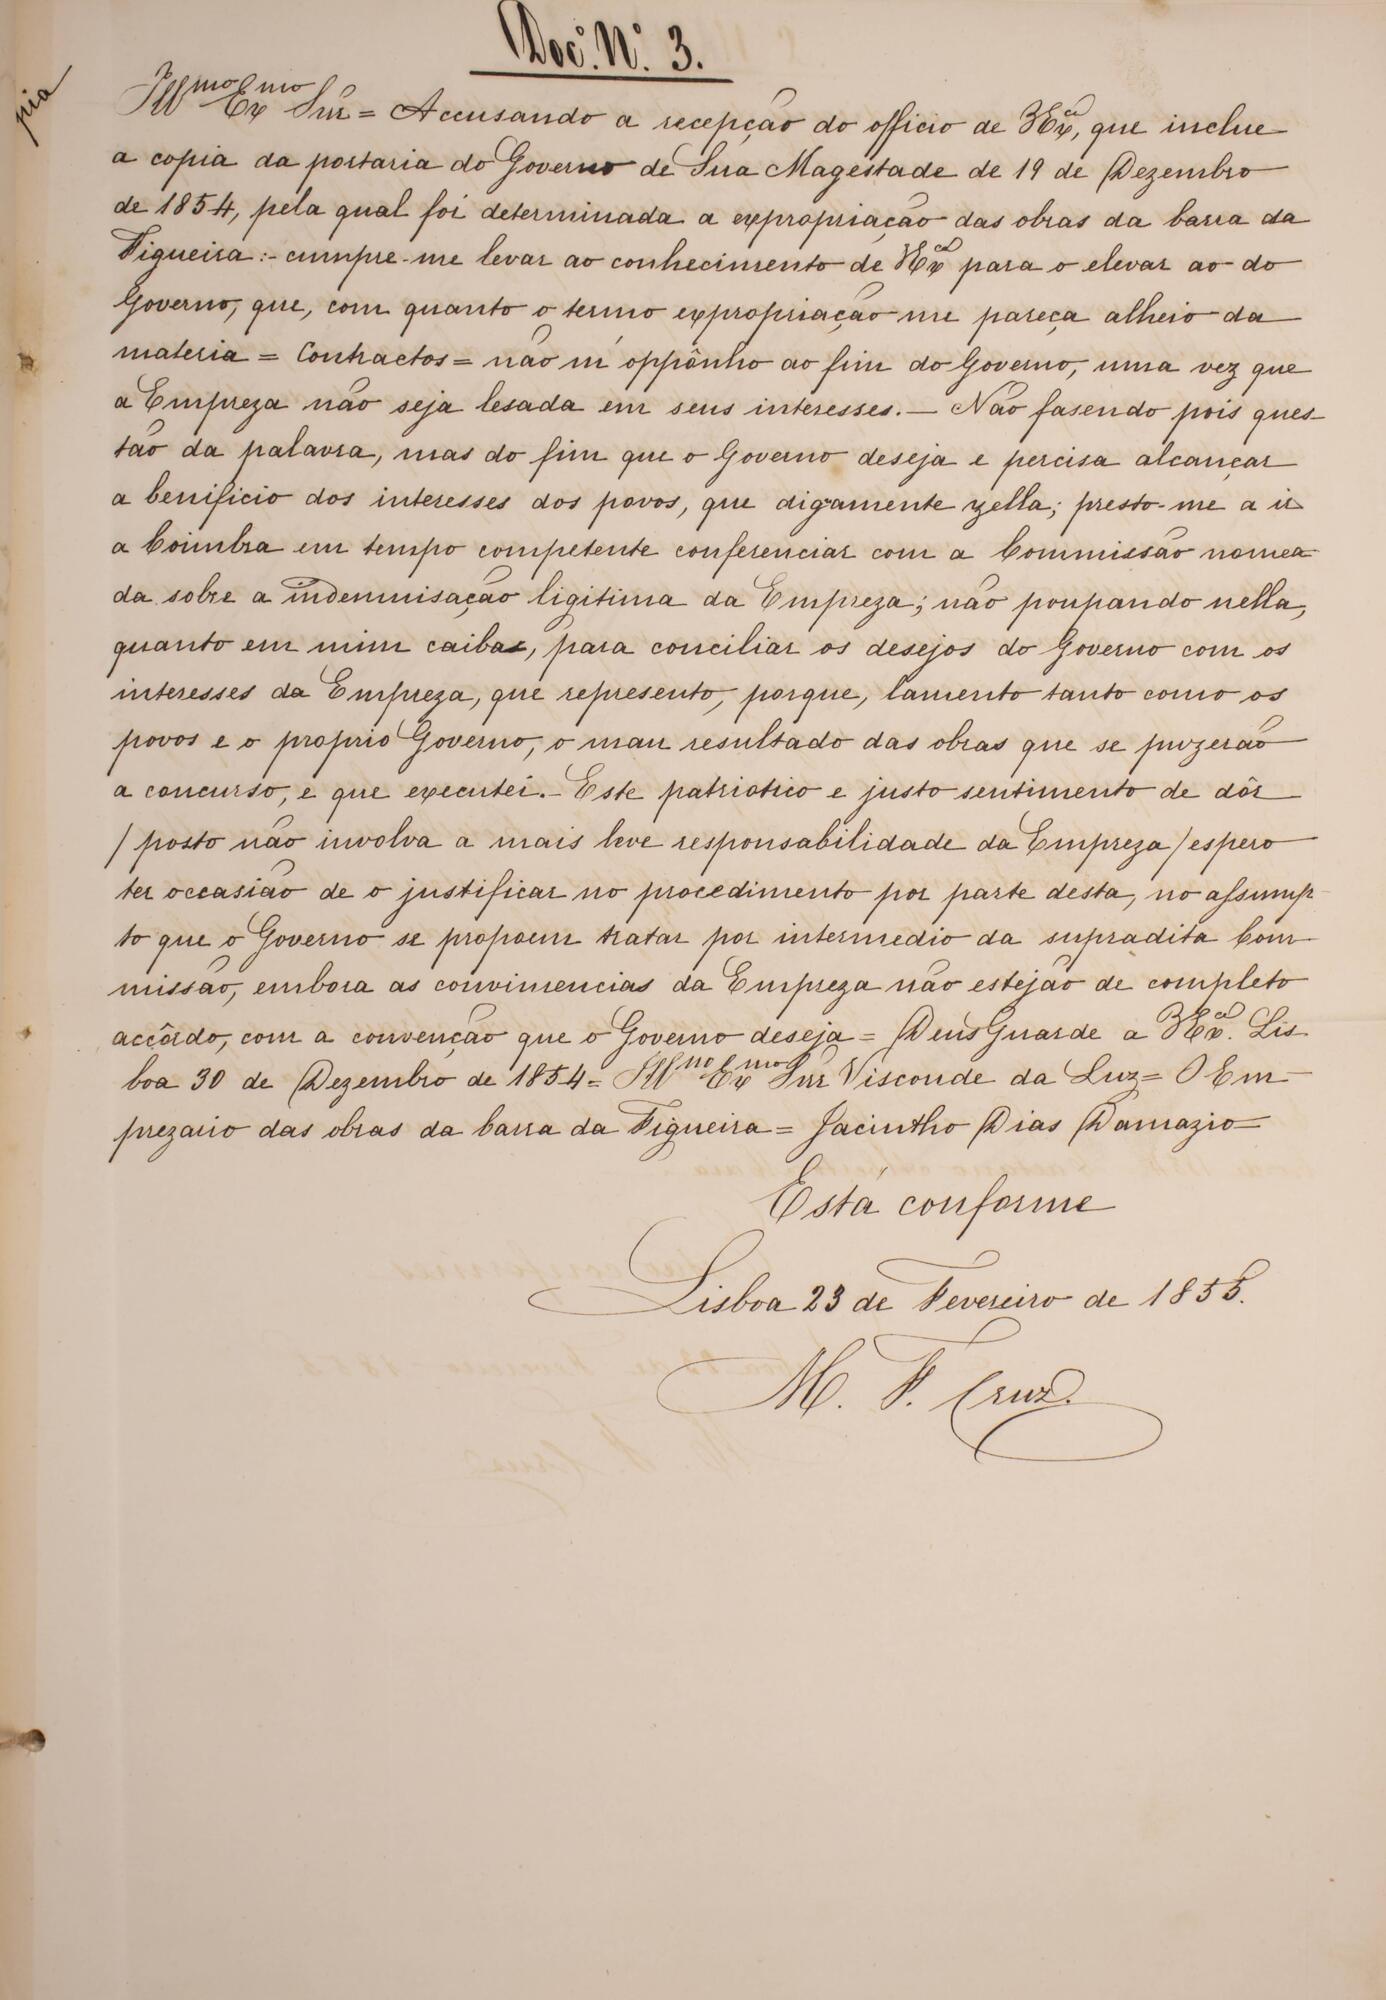 Doc.º N.º 3.
pia
Ill.mo Ex.mo Snr = Accusando a recepção do officio de V Ex.cia, que inclue
a copia da portaria do Governo de Sua Magestade de 19 de Dezembro
de 1854, pela qual foi determinada a expropriação das obras da barra da
Figueira:- cumpre-me levar ao conhecimento de V Ex.cia para o elevar ao do
Governo, que, com quanto o termo expropriação me pareça alheio da
materia = Contractos = não m' oppônho ao fim do Governo, uma vez que
a Empreza não seja lesada em seus interesses. — Não fasendo pois ques-
tão da palavra, mas do fim que o Governo deseja e percisa alcançar
a benificio dos interesses dos povos, que digamente zella; presto-me a ir
a Coimbra em tempo competente conferenciar com a Commissão nomea-
da sobre a indemnisação ligitima da Empreza; não poupando nella,
quanto em mim caiba, para conciliar os desejos do Governo com os
interesses da Empreza, que represento, porque, lamento tanto como os
povos e o proprio Governo, o mau resultado das obras que se puzerão
a concurso, e que executei. - Este patriotico e justo sentimento de dôr
/ posto não involva a mais leve responsabilidade da Empreza / espero
ter occasião de o justificar no procedimento por parte desta, no assump-
to que o Governo se propoem tratar por intermedio da supradita Com-
missão, embora as convimencias da Empreza não estejão de completo
accôrdo, com a convenção que o Governo deseja = Deus Guarde a V Ex.cia. Lis-
boa 30 de Dezembro de 1854 = Ill.mo Ex.mo Snr Visconde da Luz = O Em-
prezario das obras da barra da Figueira = Jacintho Dias Damazio =
Está conforme
Lisboa 23 de Fevereiro de 1855.
M. F. Cruz.